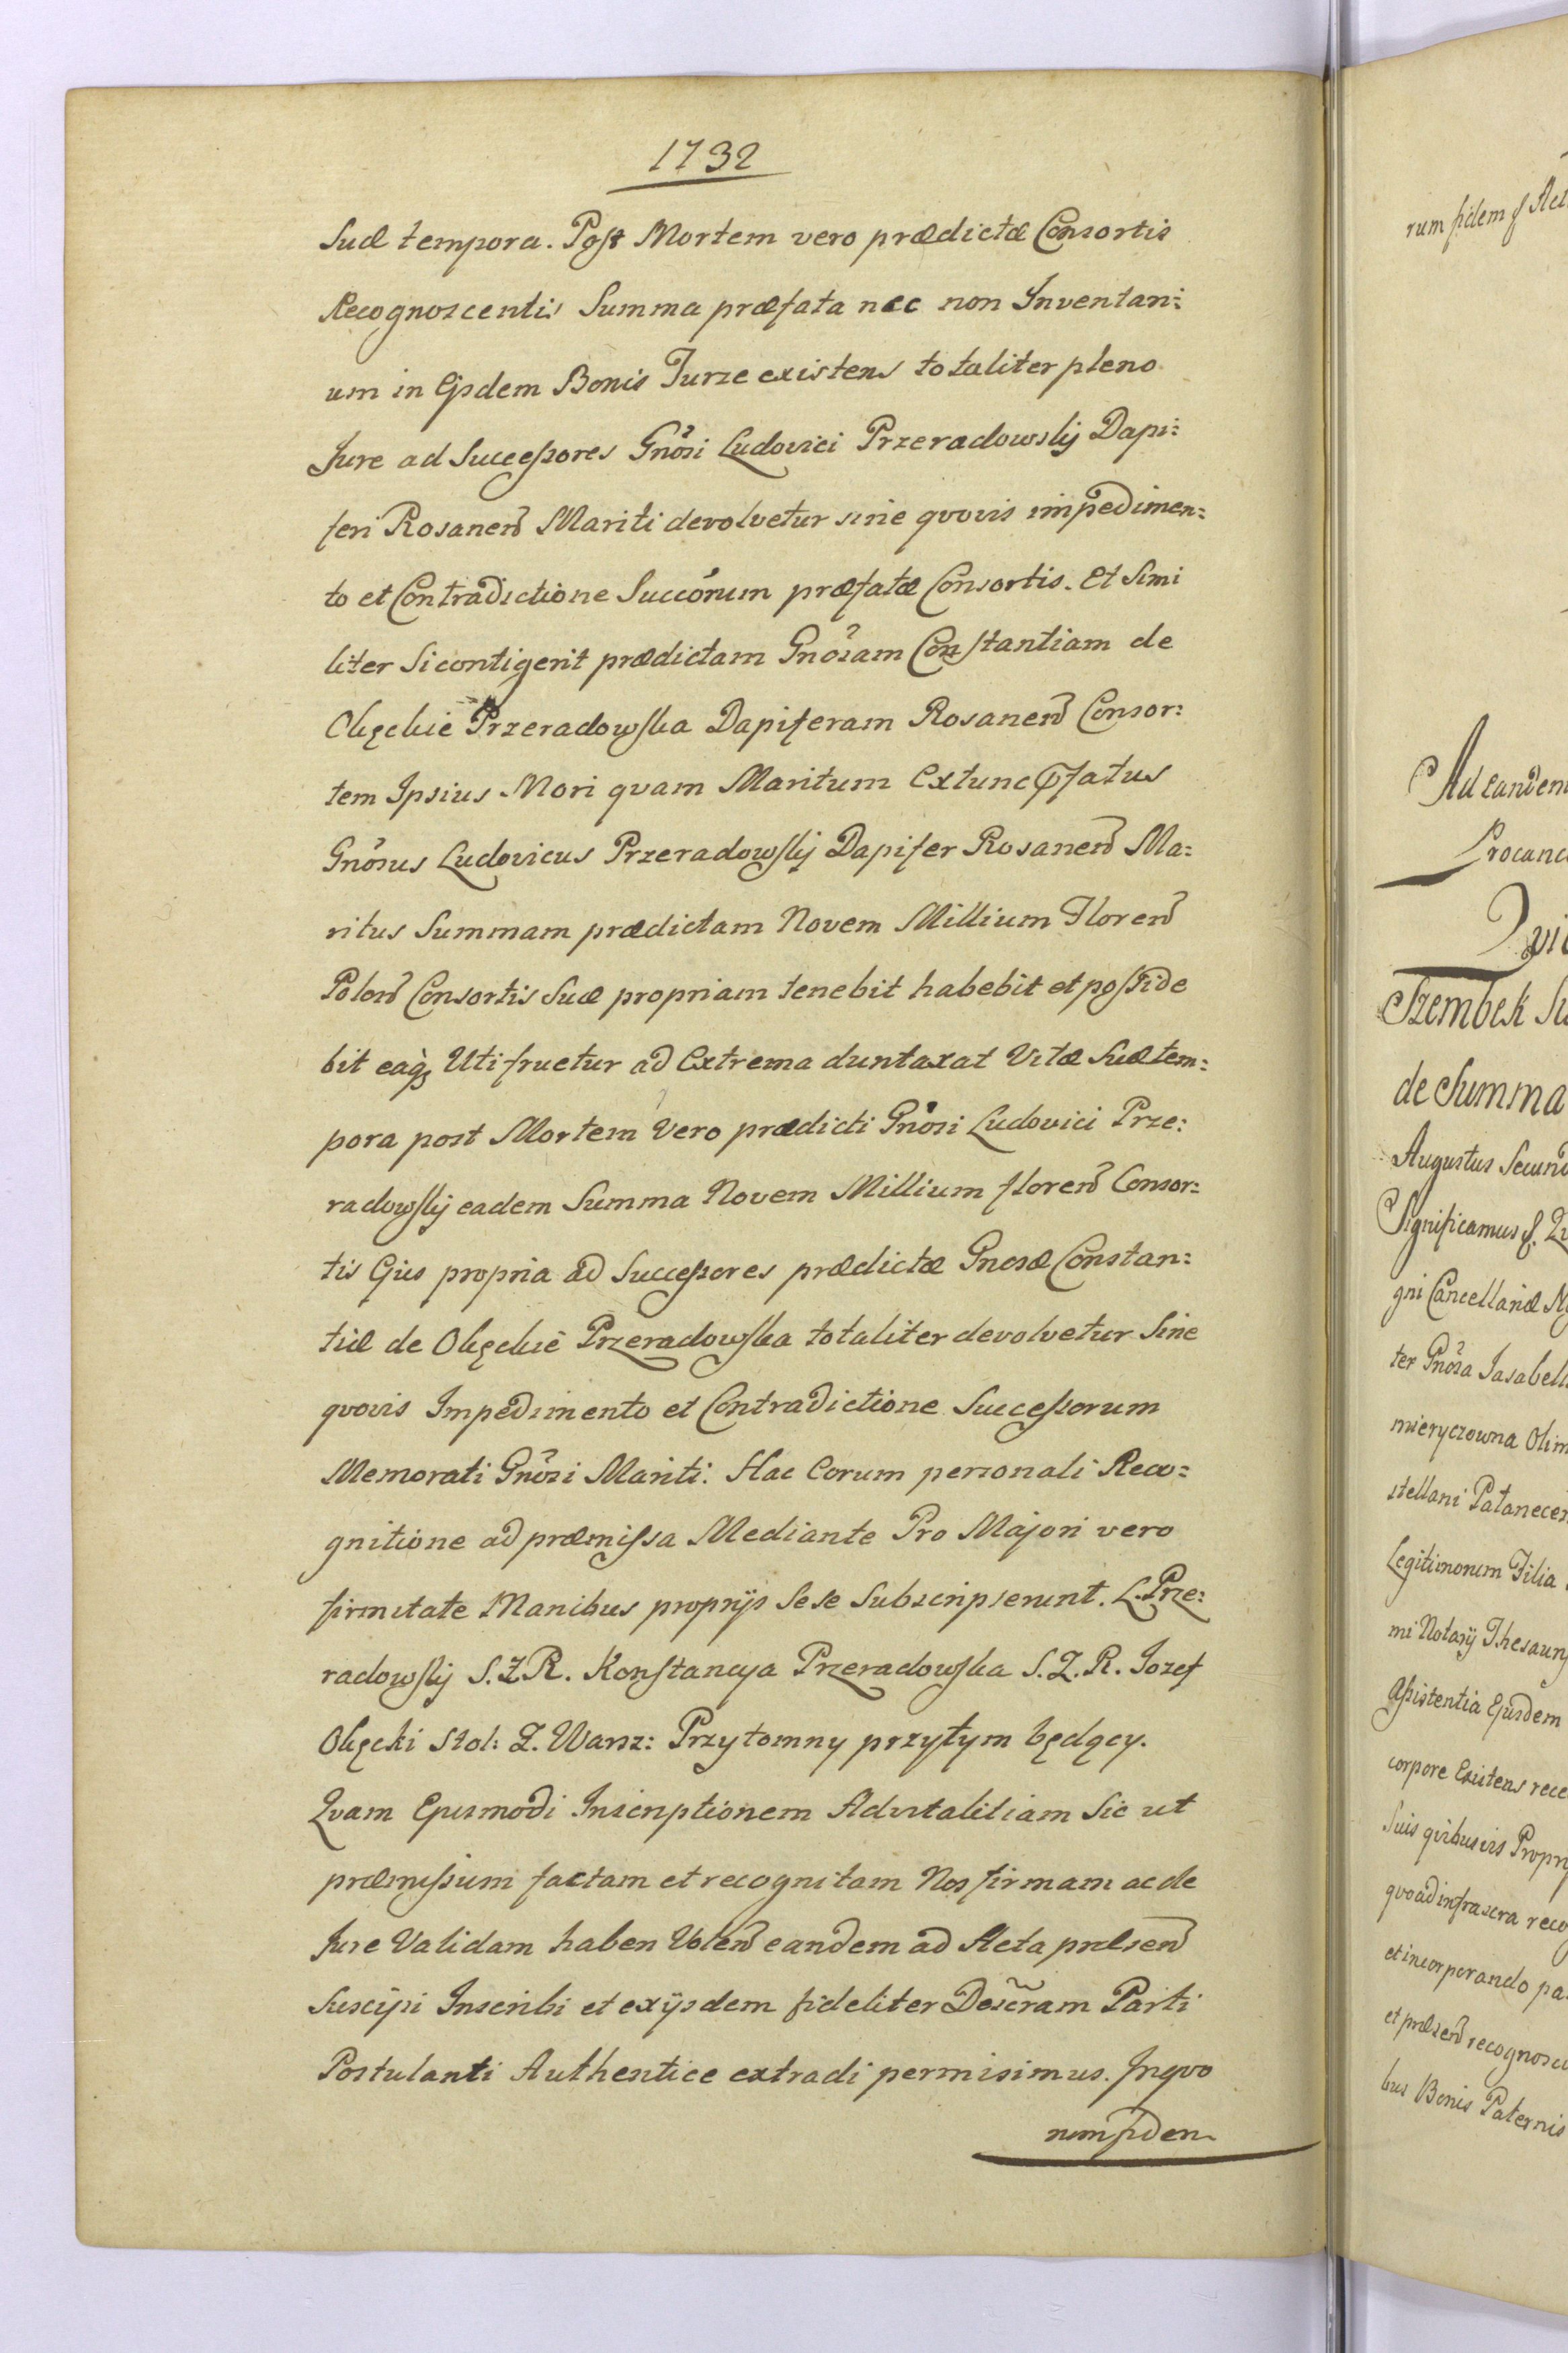 1732
Suæ tempora. Post Mortem vero prædictæ Consortis
Recognoscentis Summa præfata nec non Inventari:
um in Ejsdem Bonis Turze existens totaliter pleno
Jure ad Successores Gnosi Ludovici Przeradowskij Dapi:
feri Rosanen Mariti devolvetur sine qvovis impedimen:
to et Contradictione Succorum præfatæ Consortis. Et Simi
liter Si contigerit prædictam Gnosam Constantiam de
Okęckie Przeradowska Dapiferam Rosanen Consor:
tem Ipsius Mori qvam Maritum Extunc Pfatus
Gnosus Ludovicus Przeradowskij Dapifer Rosanen Ma:
ritus Summam prædictam Novem Millium Floren
Polon Consortis Suæ propriam tenebit habebit et posside
bit eaqȝ Uti fruetur ad Extrema duntaxat Vitæ Suæ tem:
pora post Mortem Vero prædicti Gnosi Ludovici Prze:
radowskij eadem Summa Novem Millium floren Consor:
tis Ejus propria ad Successores prædictæ Gnosæ Constan:
tiæ de Okęckie Przeradowska totaliter devolvetur Sine
qvovis Impedimento et Contradictione Successorum
Memorati Gnosi Mariti. Hac Eorum personali Reco:
gnitione ad præmissa Mediante Pro Majori vero
firmitate Manibus proprijs Se se Subscripserunt. L. Prze:
radowskij S. Z. R. Konstancya Przeradowska S. Z. R. Jozef
Okęcki Stol: Z. Warsz: Przytomny przytym będący.
Qvam Ejusmodi Inscriptionem Advitalitiam Sic ut
præmissum factam et recognitam Nos firmam ac de
Jure Validam haberi Volen eandem ad Acta præsen
Suscipi Inscribi et exijsdem fideliter Descram Parti
Postulanti Authentice extradi permisimus. Inqvo
rum fidem
rum fidem
Ad eandem
Qvi
Szembek Su
de Summa
Augustus Secund
Significamus
gni Cancellariæ
ter Gnosa Jasabell
mieryczowna Olim
stellani Patanecen
Legitimorum Filia
mi Notarij Thesaur
Assistentia Ejusdem
corpore Existens rece
Suis qvibusvis Propri
qvoad infrascra reco
et incorporando pa
et præsen recognosci
bus Bonis Paternis